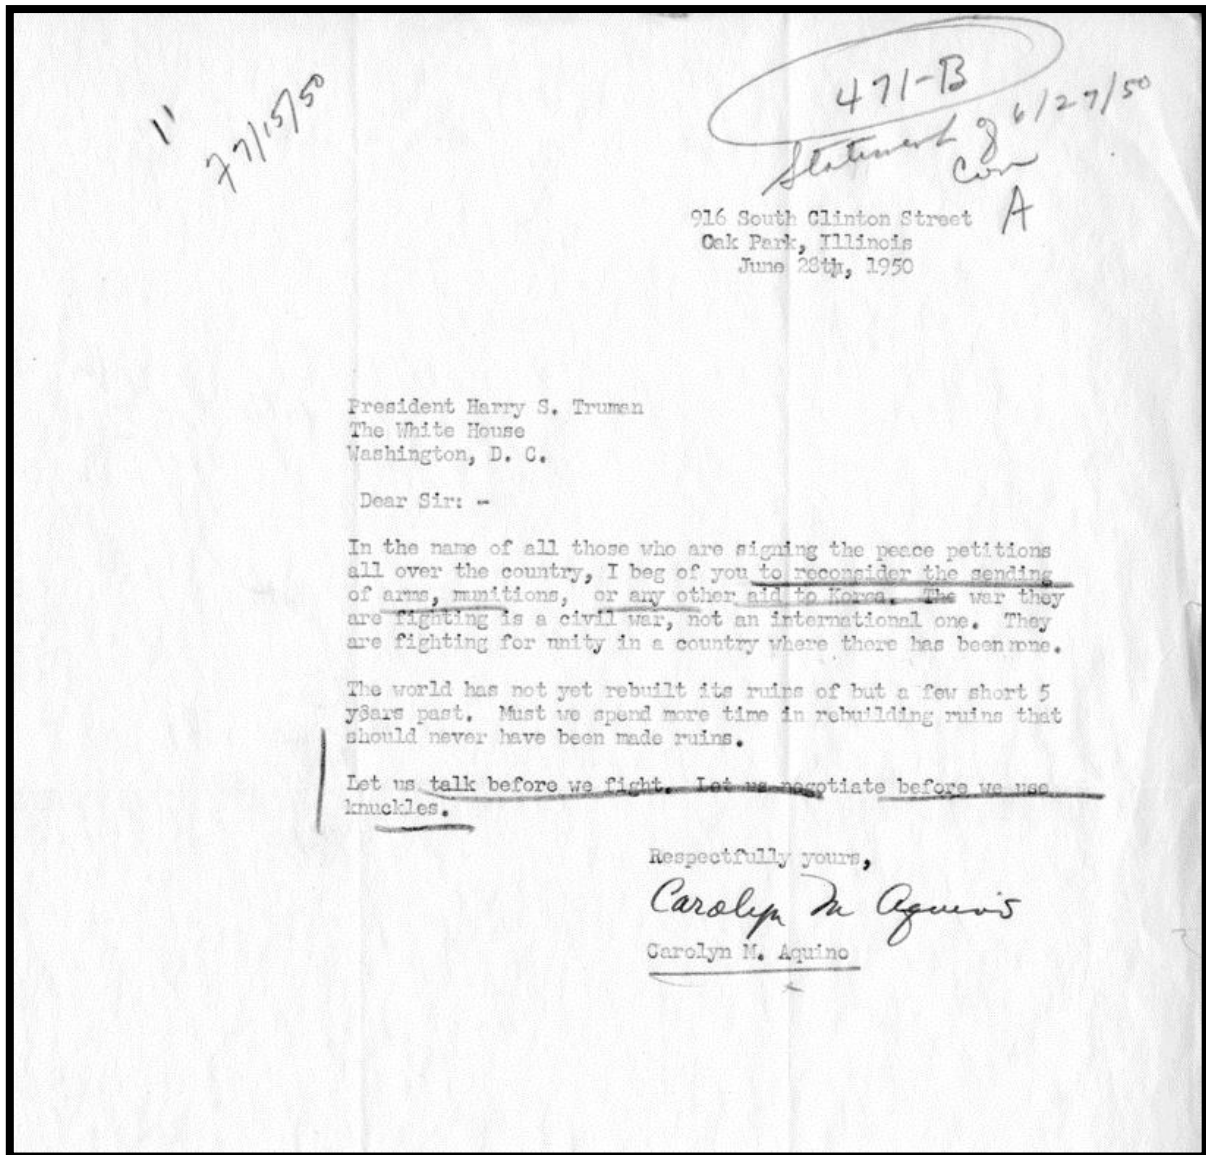 471-B
Statement of 6/27/50
Con
A
7/15/50
916 South Clinton Street
Oak Park, Illinois
June 28th, 1950
President Harry S. Truman
The White House
Washington, D. C.
Dear Sir: -
In the name of all those who are signing the peace petitions
all over the country, I beg of you to reconsider the sending
of arms, munitions, or any other aid to Korea. The war they
are fighting is a civil war, not an international one. They
are fighting for unity in a country where there has been none.
The world has not yet rebuilt its ruins of but a few short 5
y3ars past. Must we spend more time in rebuilding ruins that
should never have been made ruins.
Let us talk before we fight. Let us negotiate before we use
knuckles.
Respectfully yours,
Carolyn M Aquino
Carolyn M. Aquino